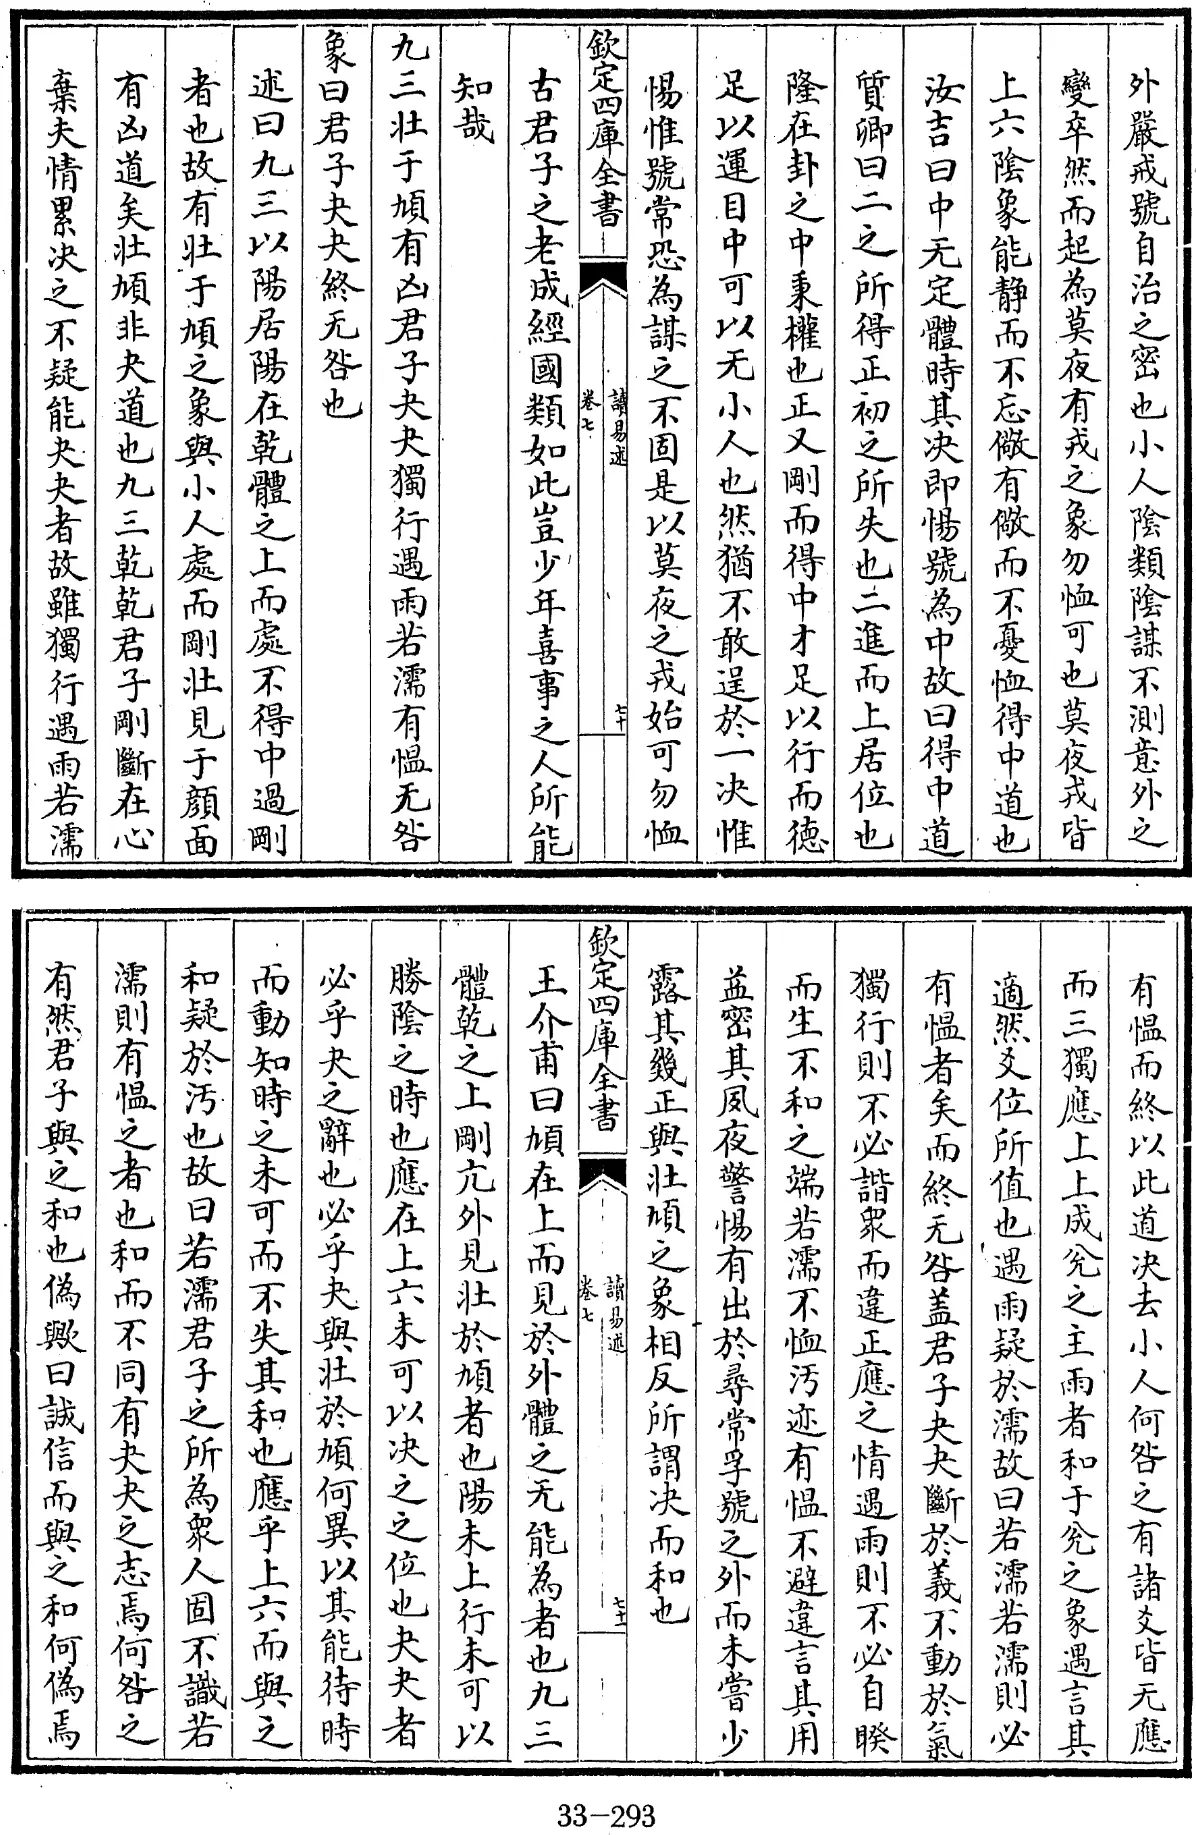 外嚴戒號自治之密也小人陰類陰謀不測意外之
變卒然而起為莫夜有戎之象勿恤可也莫夜戎皆
上六陰象能静而不忘儆有儆而不憂恤得中道也
汝吉曰中无定體時其决即惕號為中故曰得中道
質卿曰二之所得正初之所失也二進而上居位也
隆在卦之中秉權也正又剛而得中才足以行而德
足以運目中可以无小人也然猶不敢逞於一决惟
惕惟號常恐為謀之不固是以莫夜之戎始可勿恤
欽定四庫全書
讀易述
卷七
七十
古君子之老成經國類如此豈少年喜事之人所能
知哉
九三壯于頄有凶君子夬夬獨行遇雨若濡有愠无咎
象曰君子夬夬終无咎也
述曰九三以陽居陽在乾體之上而處不得中過剛
者也故有壯于頄之象與小人處而剛壯見于顔面
有凶道矣壯頄非夬道也九三乾乾君子剛斷在心
棄夫情累决之不疑能夬夬者故雖獨行遇雨若濡
有愠而終以此道决去小人何咎之有諸爻皆无應
而三獨應上上成兊之主雨者和于兊之象遇言其
適然爻位所值也遇雨疑於濡故曰若濡若濡則必
有愠者矣而終无咎盖君子夬夬斷於義不動於氣
獨行則不必諧衆而違正應之情遇雨則不必自睽
而生不和之端若濡不恤汚迹有愠不避違言其用
益密其夙夜警惕有出於尋常孚號之外而未嘗少
露其幾正與壯頄之象相反所謂决而和也
欽定四庫全書
讀易述
卷七
七十一
王介甫曰頄在上而見於外體之无能為者也九三
體乾之上剛亢外見壯於頄者也陽未上行未可以
勝陰之時也應在上六未可以决之之位也夬夬者
必乎夬之辭也必乎夬與壯於頄何異以其能待時
而動知時之未可而不失其和也應乎上六而與之
和疑於汚也故曰若濡君子之所為衆人固不識若
濡則有愠之者也和而不同有夬夬之志焉何咎之
有然君子與之和也偽歟曰誠信而與之和何偽焉
33-293